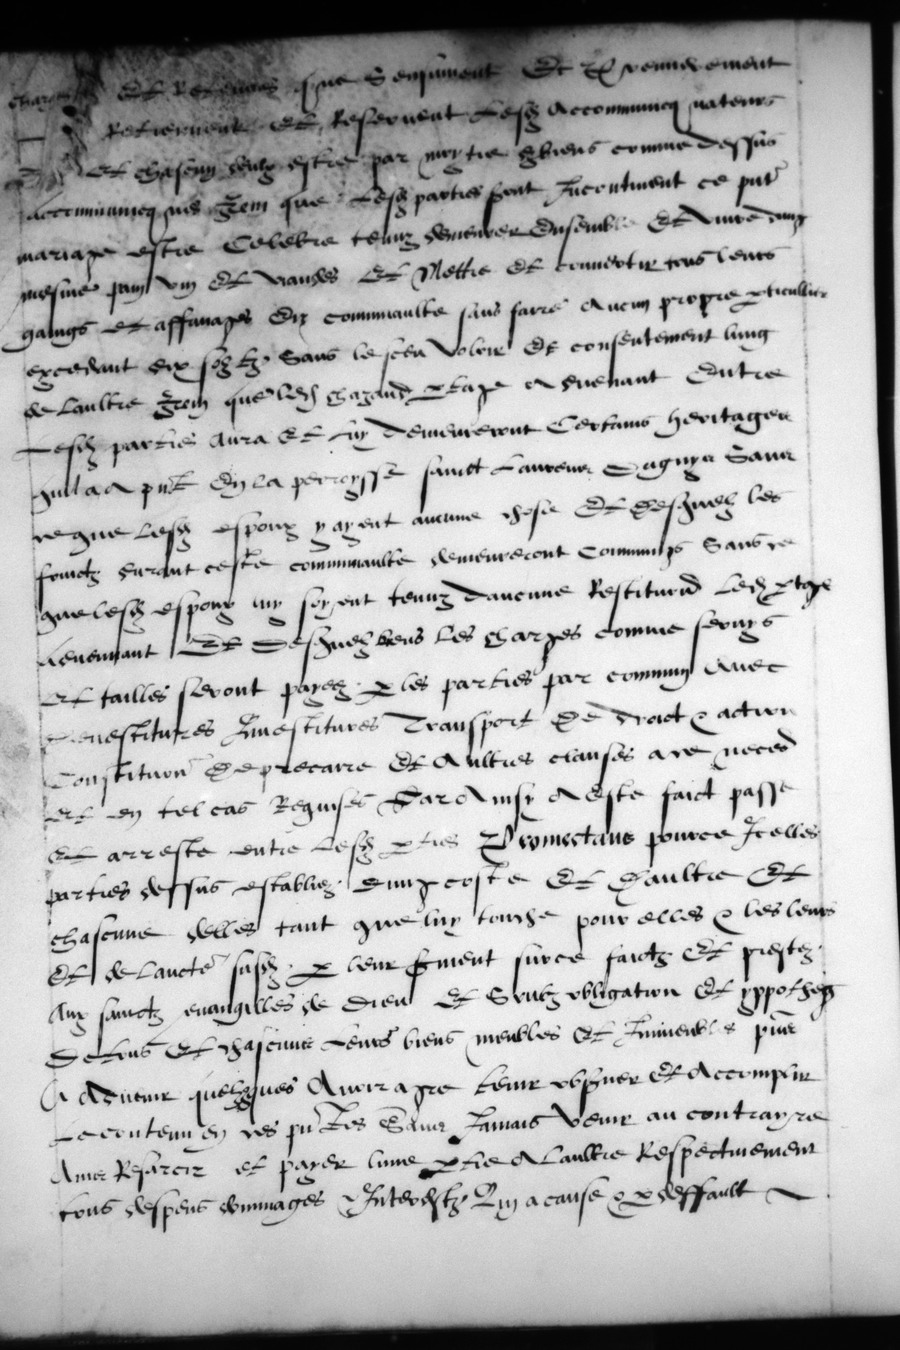 charges et Retenues que Seensuivent Et Premierement
Retiennent et Reservent Lesd accommuniq nateurs
et chascun deulx estre par moytie es biens comme dessus
accommunicq nes Item que Lesd parties sont Incontinent ce pnt
mariage estre Celebre tenuz demeurer Ensemble et vivre dung
mesme pain vin et viandes et Mettre et convertir tous leurs
gaings et affanages En communaulte sans faire Aucun propre particullier
excedant dix solz tz Sans le sceu voloir et consentement lung
de Laultre Item que led partage advenant Entre
Lesd parties Aura et Luy Demeureront Certains heritages
quil a a pnt En La perroysse sainct Laurens Sans
ce que Lesd espoux y ayent aucune chose Et Desquelz les
fruictz durant ceste communaulte demeureront Communs Sans ce
que lesd espoux luy soyent tenuz daucune Restitution Led partage
advennant Et Desquelz biens Les charges comme servys
et tailles seront payez par les parties par commun Avec
Devestitures Investitures Transport De droict & action
Constitution De precaire et Aultres clauses a ce neces
et en tel cas Requises Car Ainsy A este faict passe
Et arreste entre Lesd parties Promectans pource Icelles
parties dessus establies dung coste Et Daultre Et
chascune delles tant que luy touche pour elles & les leurs
Et de Laucte susd par leur serment sur ce faictz Et prestez
Aux sainctz evangilles de Dieu Et Soubz obligation Et yppotheq
De tous Et chascuns Leurs biens meubles Et Immeubles pnts
A advenir quelzques Avoir agre tenir observer Et Accomplir
Le contenu en ces pntes Sans Jamais Venir au contrayre
Ains Resarcir et payer lune partie A Laultre Respectivement
tous despens dommages & Interestz Qui a cause & par deffault